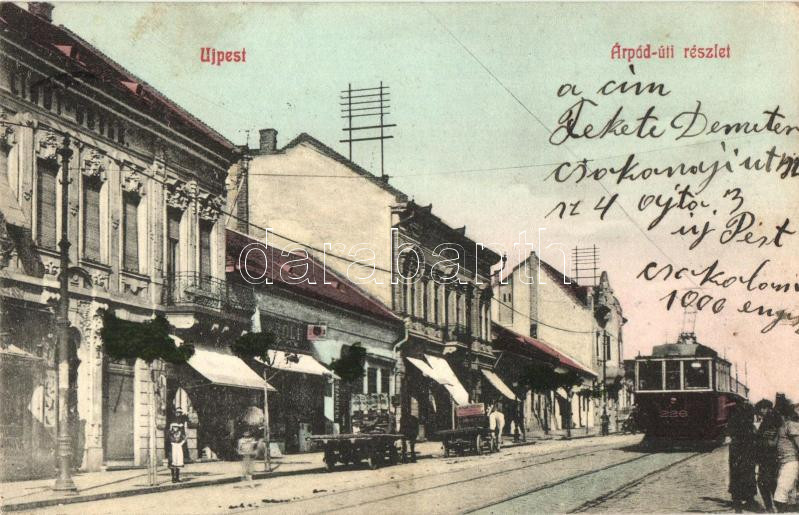 Ujpest
Árpád-úti részlet
a cím
Fekete Demeter
csokonaji ut
sz 4 ajto 3
uj Pest
csokolom
1000
darabanth
228